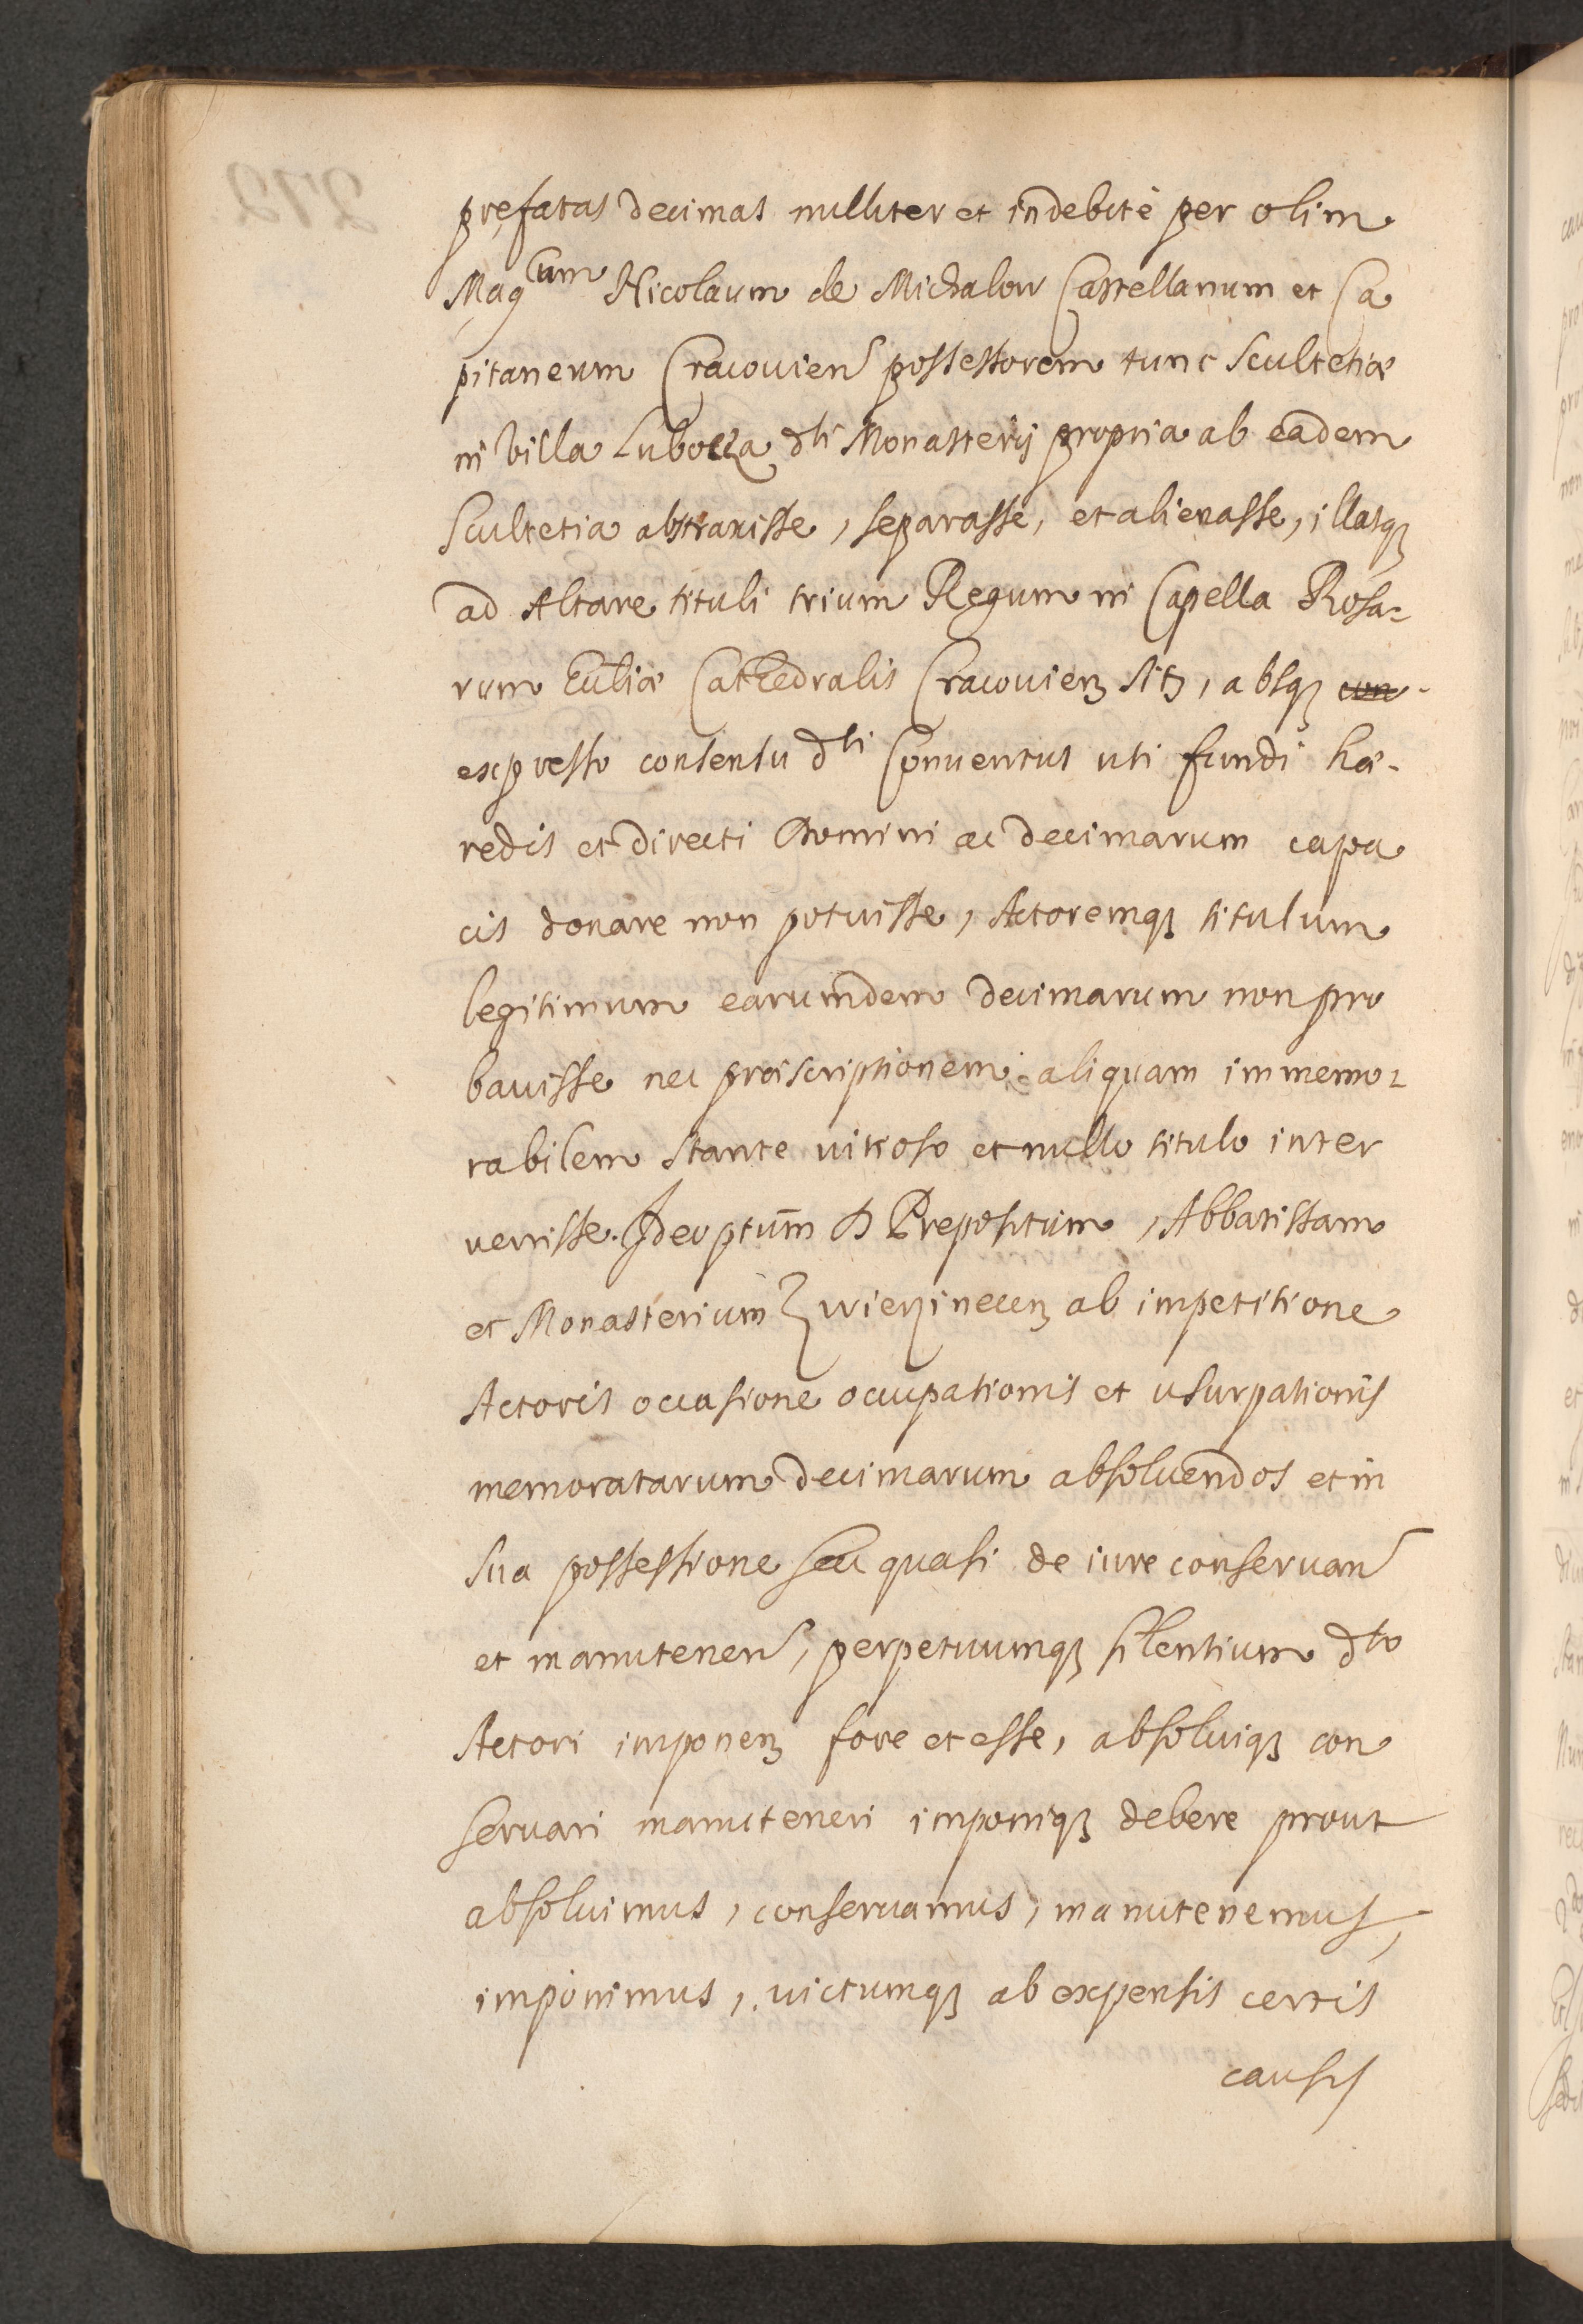 præfatas decimas nulliter et indebitè per olim
Mag<sup>cum</sup> Nicolaum de Michalow Castellanum et Ca
pitaneum Cracouien possessorem tunc Scultetiæ
in Villa Luboczа d<sup>ti</sup> Monasterij propria ab eadem
Scultetia abstraxisse, separasse, et alienasse, illasq₃
ad Altare tituli trium Regum in Capella Rosa-
rum Eccliæ Cathedralis Cracouien₃ sit₃, absq₃
expresso consensu d<sup>ti</sup> Conuentus uti fundi hæ-
redis et directi Domini ac decimarum capa
cis donare non potuisse, Actoremq₃ titulum
legitimum earumdem decimarum non pro
bauisse nec præscriptionem aliquam immemo-
rabilem stante uitioso et nullo titulo inter
uenisse. Ideo ptum̄ D Prepositum, Abbatissam
et Monasterium Zwierzinecen₃ ab impetitione
Actoris occasione occupationis et usurpationis
memoratarum decimarum absoluendos et in
sua possessione seu quasi de iure conseruan
et manutenen, perpetuumq₃ silentium d<sup>to</sup>
Actori imponen₃ fore et esse, absoluiq₃ con
seruari manuteneri imponiq₃ debere prout
absoluimus, conseruamus, manutenemus,
imponimus, uictumq₃ ab expensis certis
causis